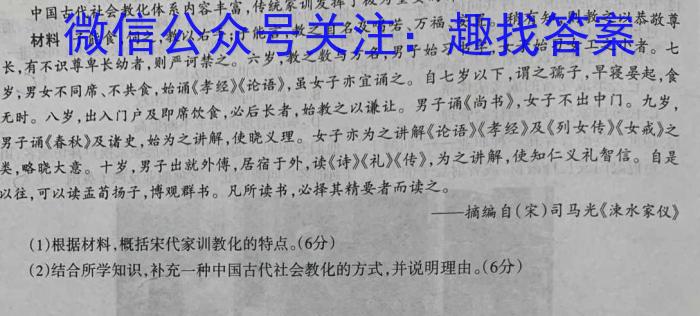 中国古代社会教化体系内容丰富,传统家训发挥了极为重要的
微信公众号关注:趣找答案
材料
教以右手
教之
万福
稍有知
则教之以恭敬尊
长,有不识尊卑长幼者,则严诃禁之。六岁,教之数与方名,男子始习书字,女子始习女工之小者。七
岁,男女不同席、不共食,始诵《孝经》《论语》,虽女子亦宜诵之。自七岁以下,谓之孺子,早寝晏起,食
无时。八岁,出入门户及即席饮食,必后长者,始教之以谦让。男子诵《尚书》,女子不出中门。九岁,
男子诵《春秋》及诸史,始为之讲解,使晓义理。女子亦为之讲解《论语》《孝经》及《列女传》《女戒》之
类,略晓大意。十岁,男子出就外傅,居宿于外,读《诗》《礼》《传》,为之讲解,使知仁义礼智信。自是
以往,可以读孟荀扬子,博观群书。凡所读书,必择其精要者而读之。
——摘编自(宋)司马光《涑水家仪》
(1)根据材料,概括宋代家训教化的特点。(6分)
(2)结合所学知识,补充一种中国古代社会教化的方式,并说明理由。(6分)